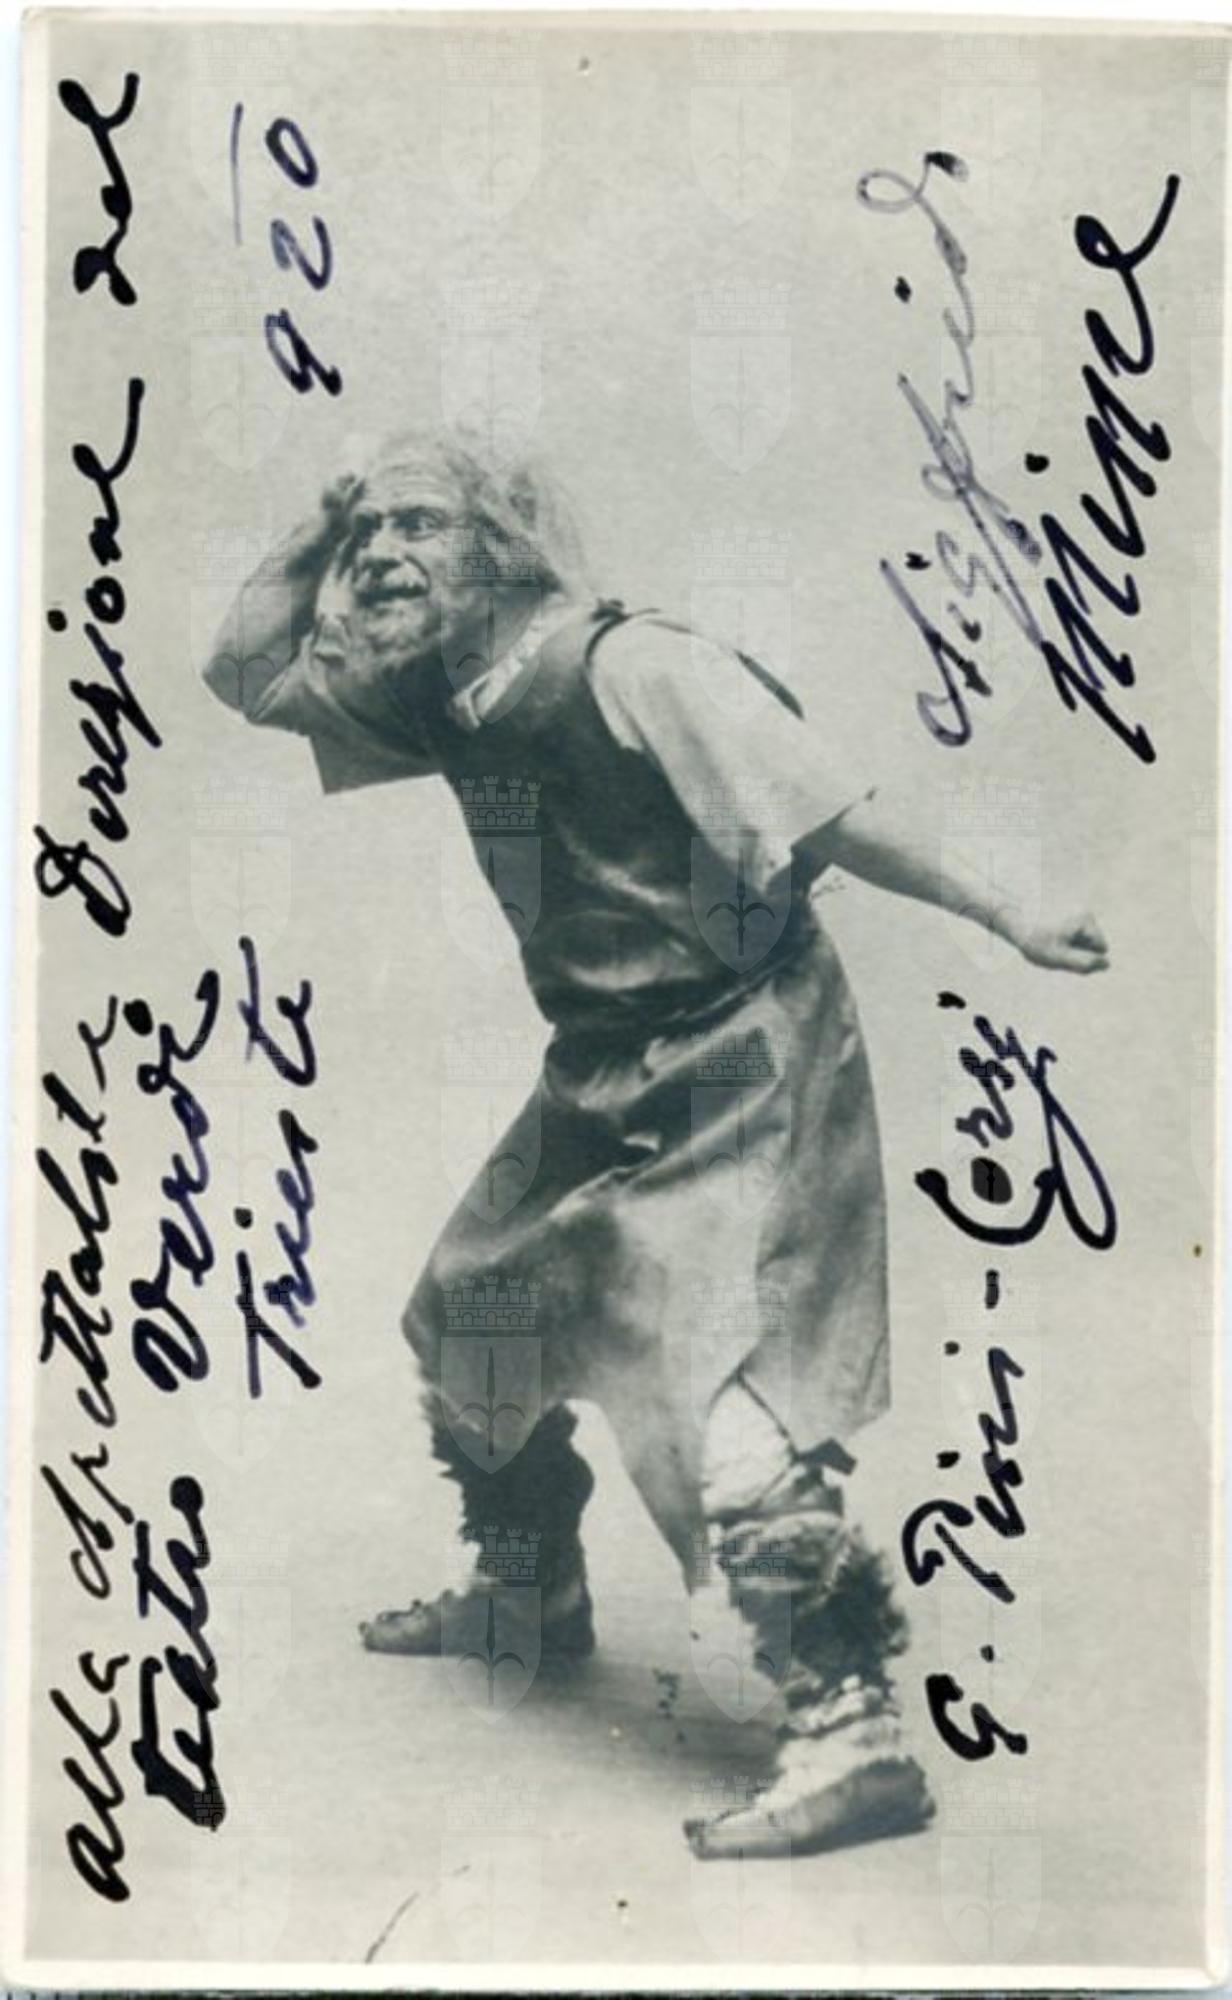 alla Spettabile Deregione del
Teatro Verdi
Trieste
920
G. Pini - Corsi
Sigfrid
Mime